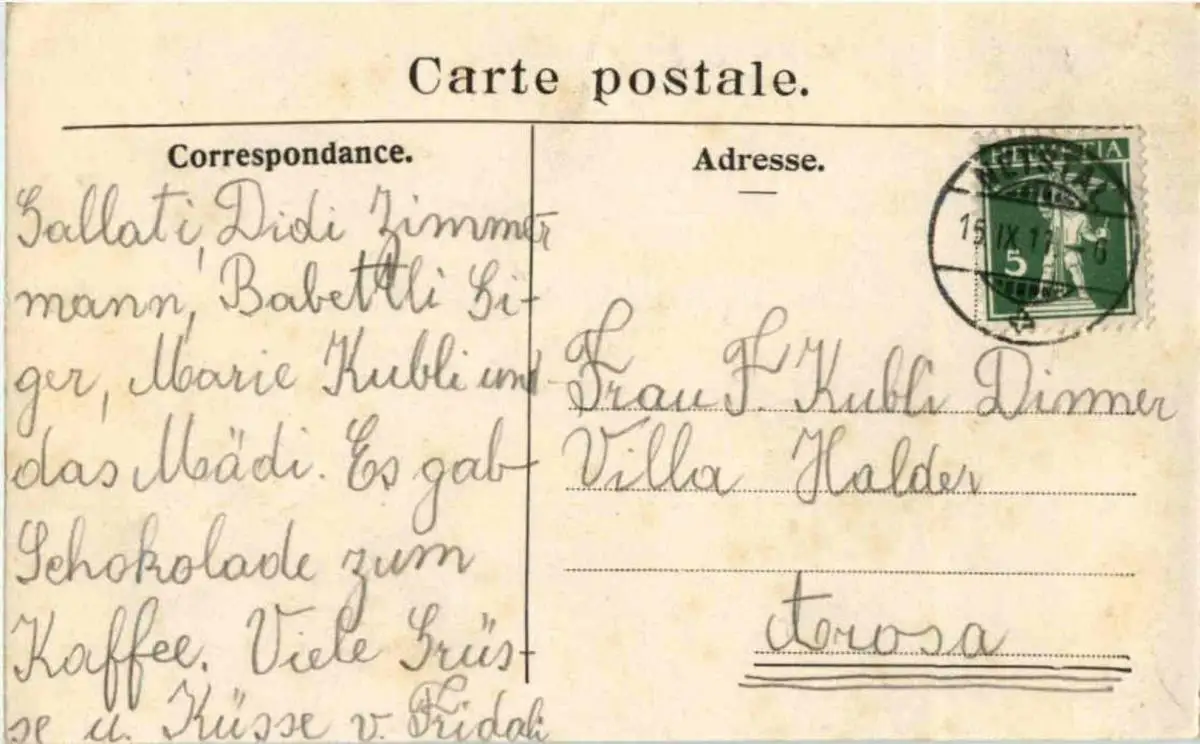 Carte postale.
Correspondance.
Gallati, Didi Zimmer
mann, Babettli Gi-
ger, Marie Kubli und
das Mädi. Es gab
Schokolade zum
Kaffee. Viele Grüs-
se u. Küsse v. Fridali
Adresse.
HELVETIA
NETSTAL
15. IX. 11. - 6
5
Frau F. Kubli Dinner
Villa Halder
Arosa